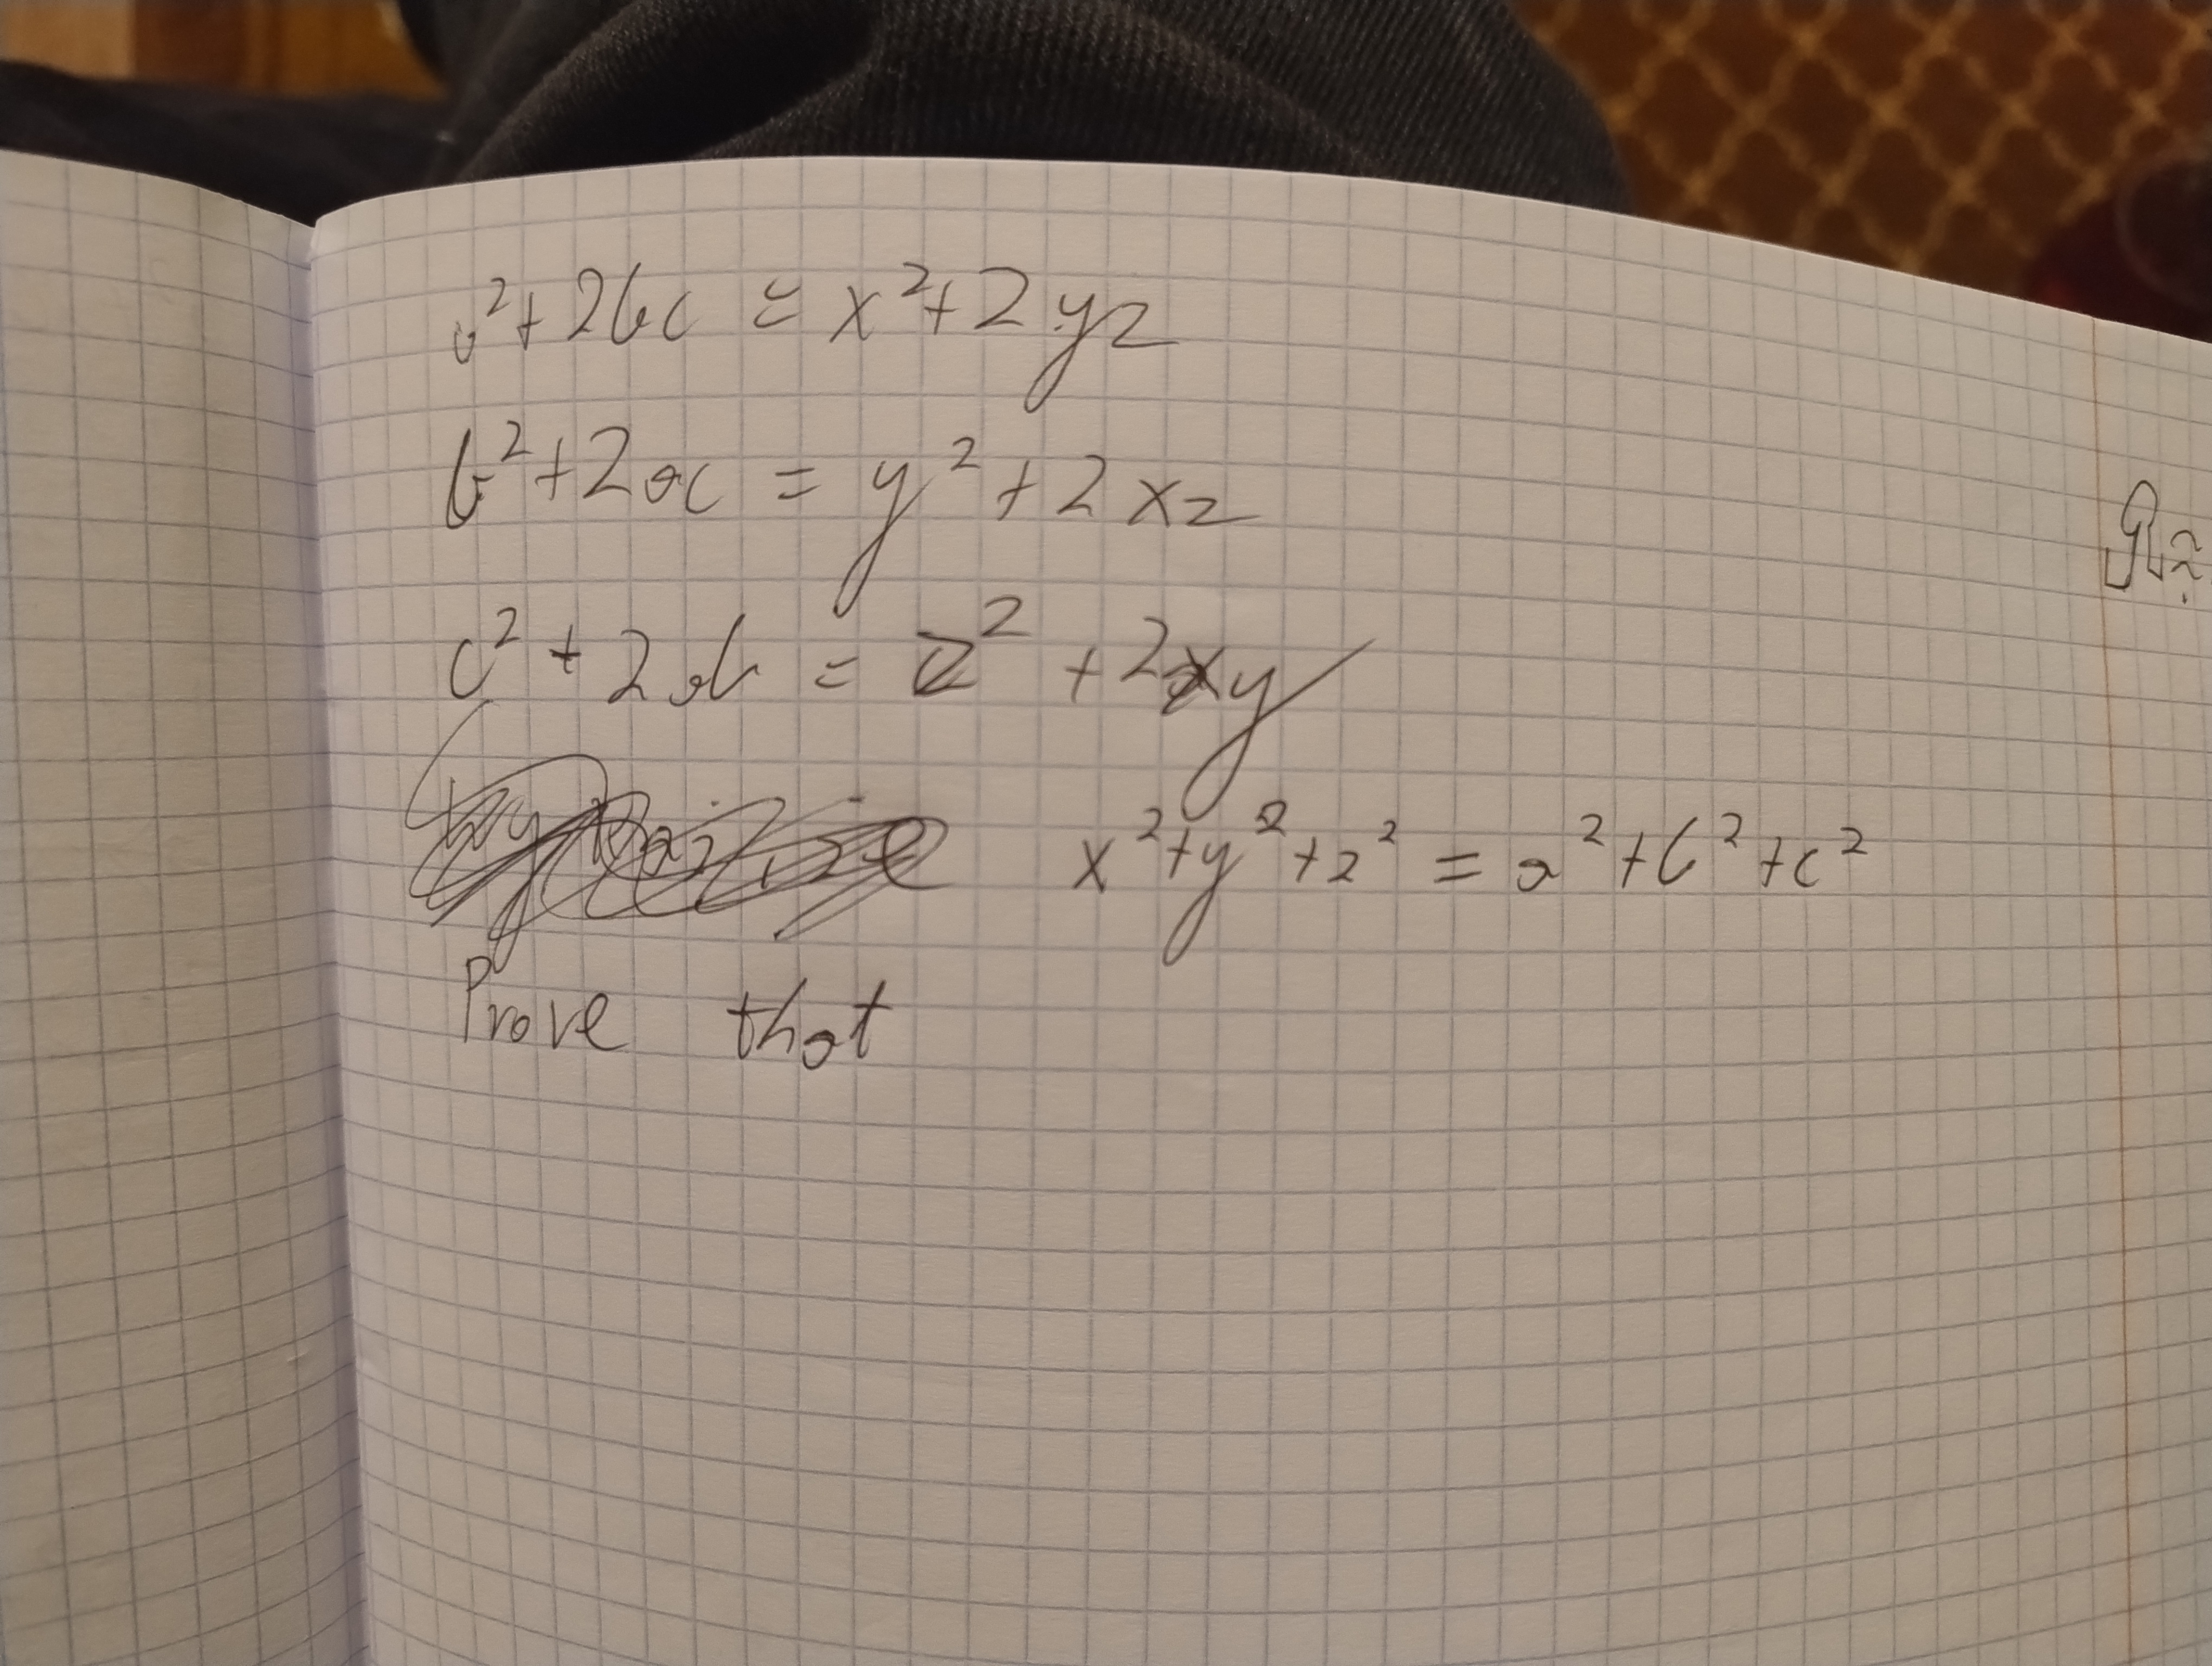 a²+2bc = x²+2yz
b²+2ac = y²+2xz
c²+2ab = z²+2xy
x²+y²+z² = a²+b²+c²
Prove that